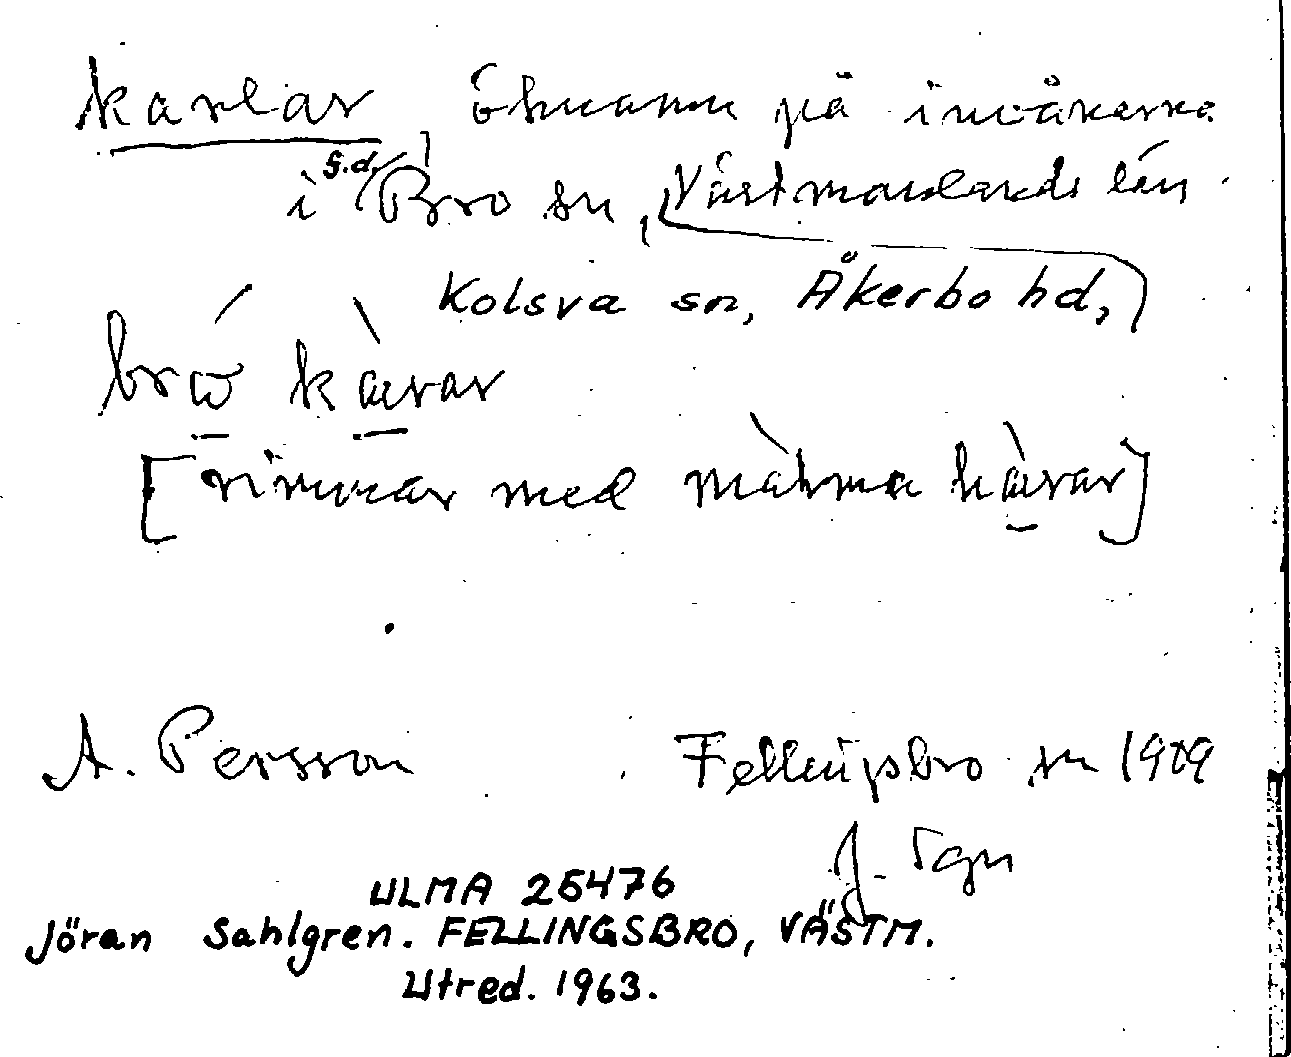 karlar, öknamn på invånarna
i f.d. Bro sn, Västmanlands län
Kolsva sn, Åkerbo hd,
bró kàrar
[rimmar med màhma kàrar]
A. Persson Fellingsbro sn 1909
J. Sgn
ULMA 26476
Jöran Sahlgren. FELLINGSBRO, VÄSTM.
Utred. 1963.